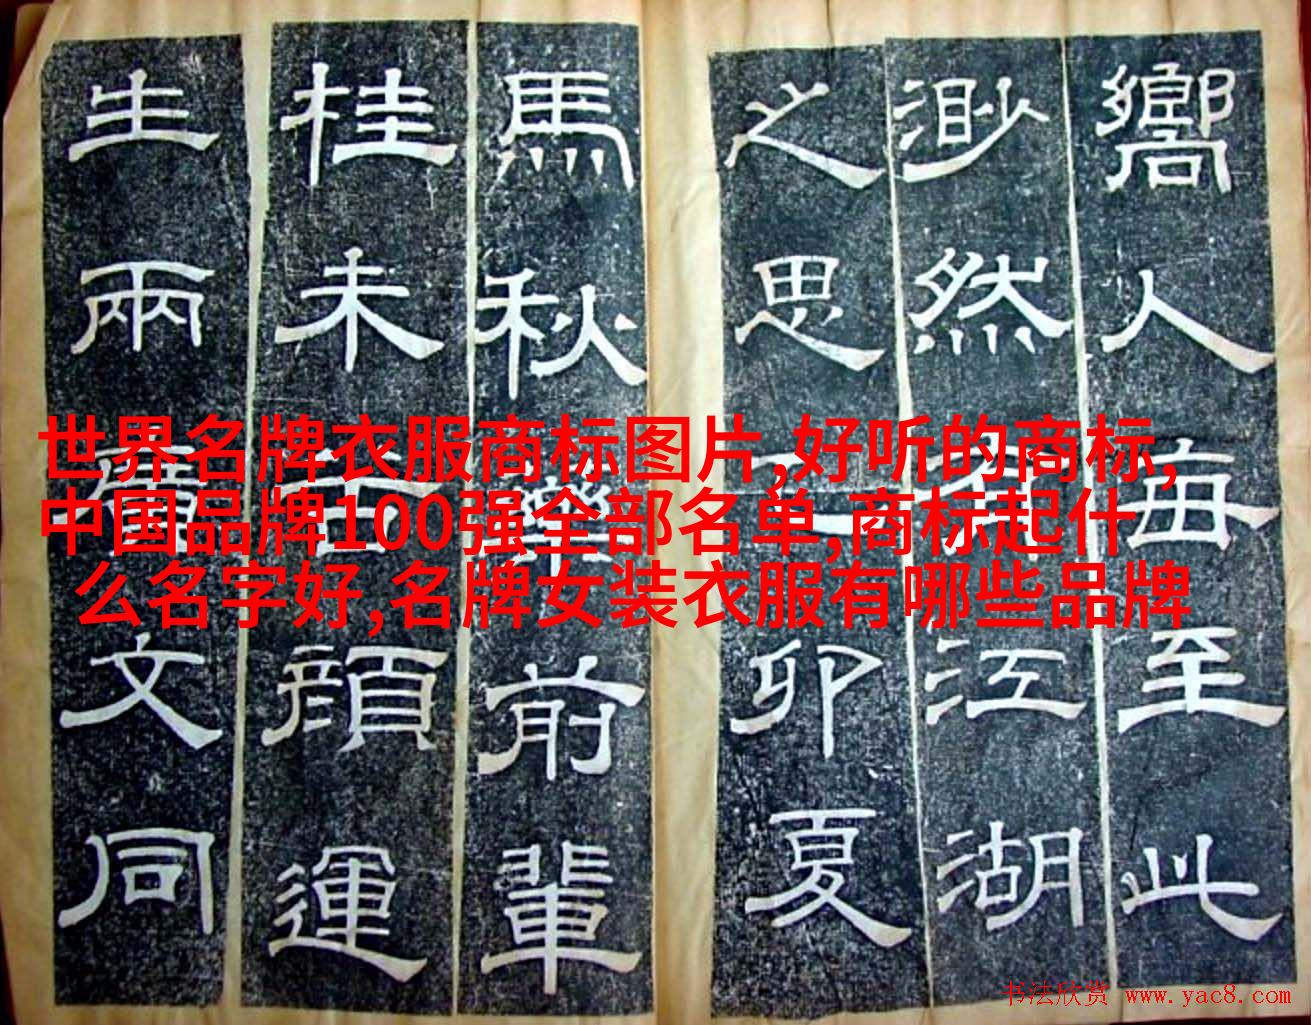 嚮人每至此
渺然江湖
之思卯夏
馬秋前輩
桂未顏運
生兩廣文同
世界名牌衣服商标图片,好听的商标,
中国品牌100强全部名单,商标起什
么名字好,名牌女装衣服有哪些品牌
书法欣赏 www.yac8.com